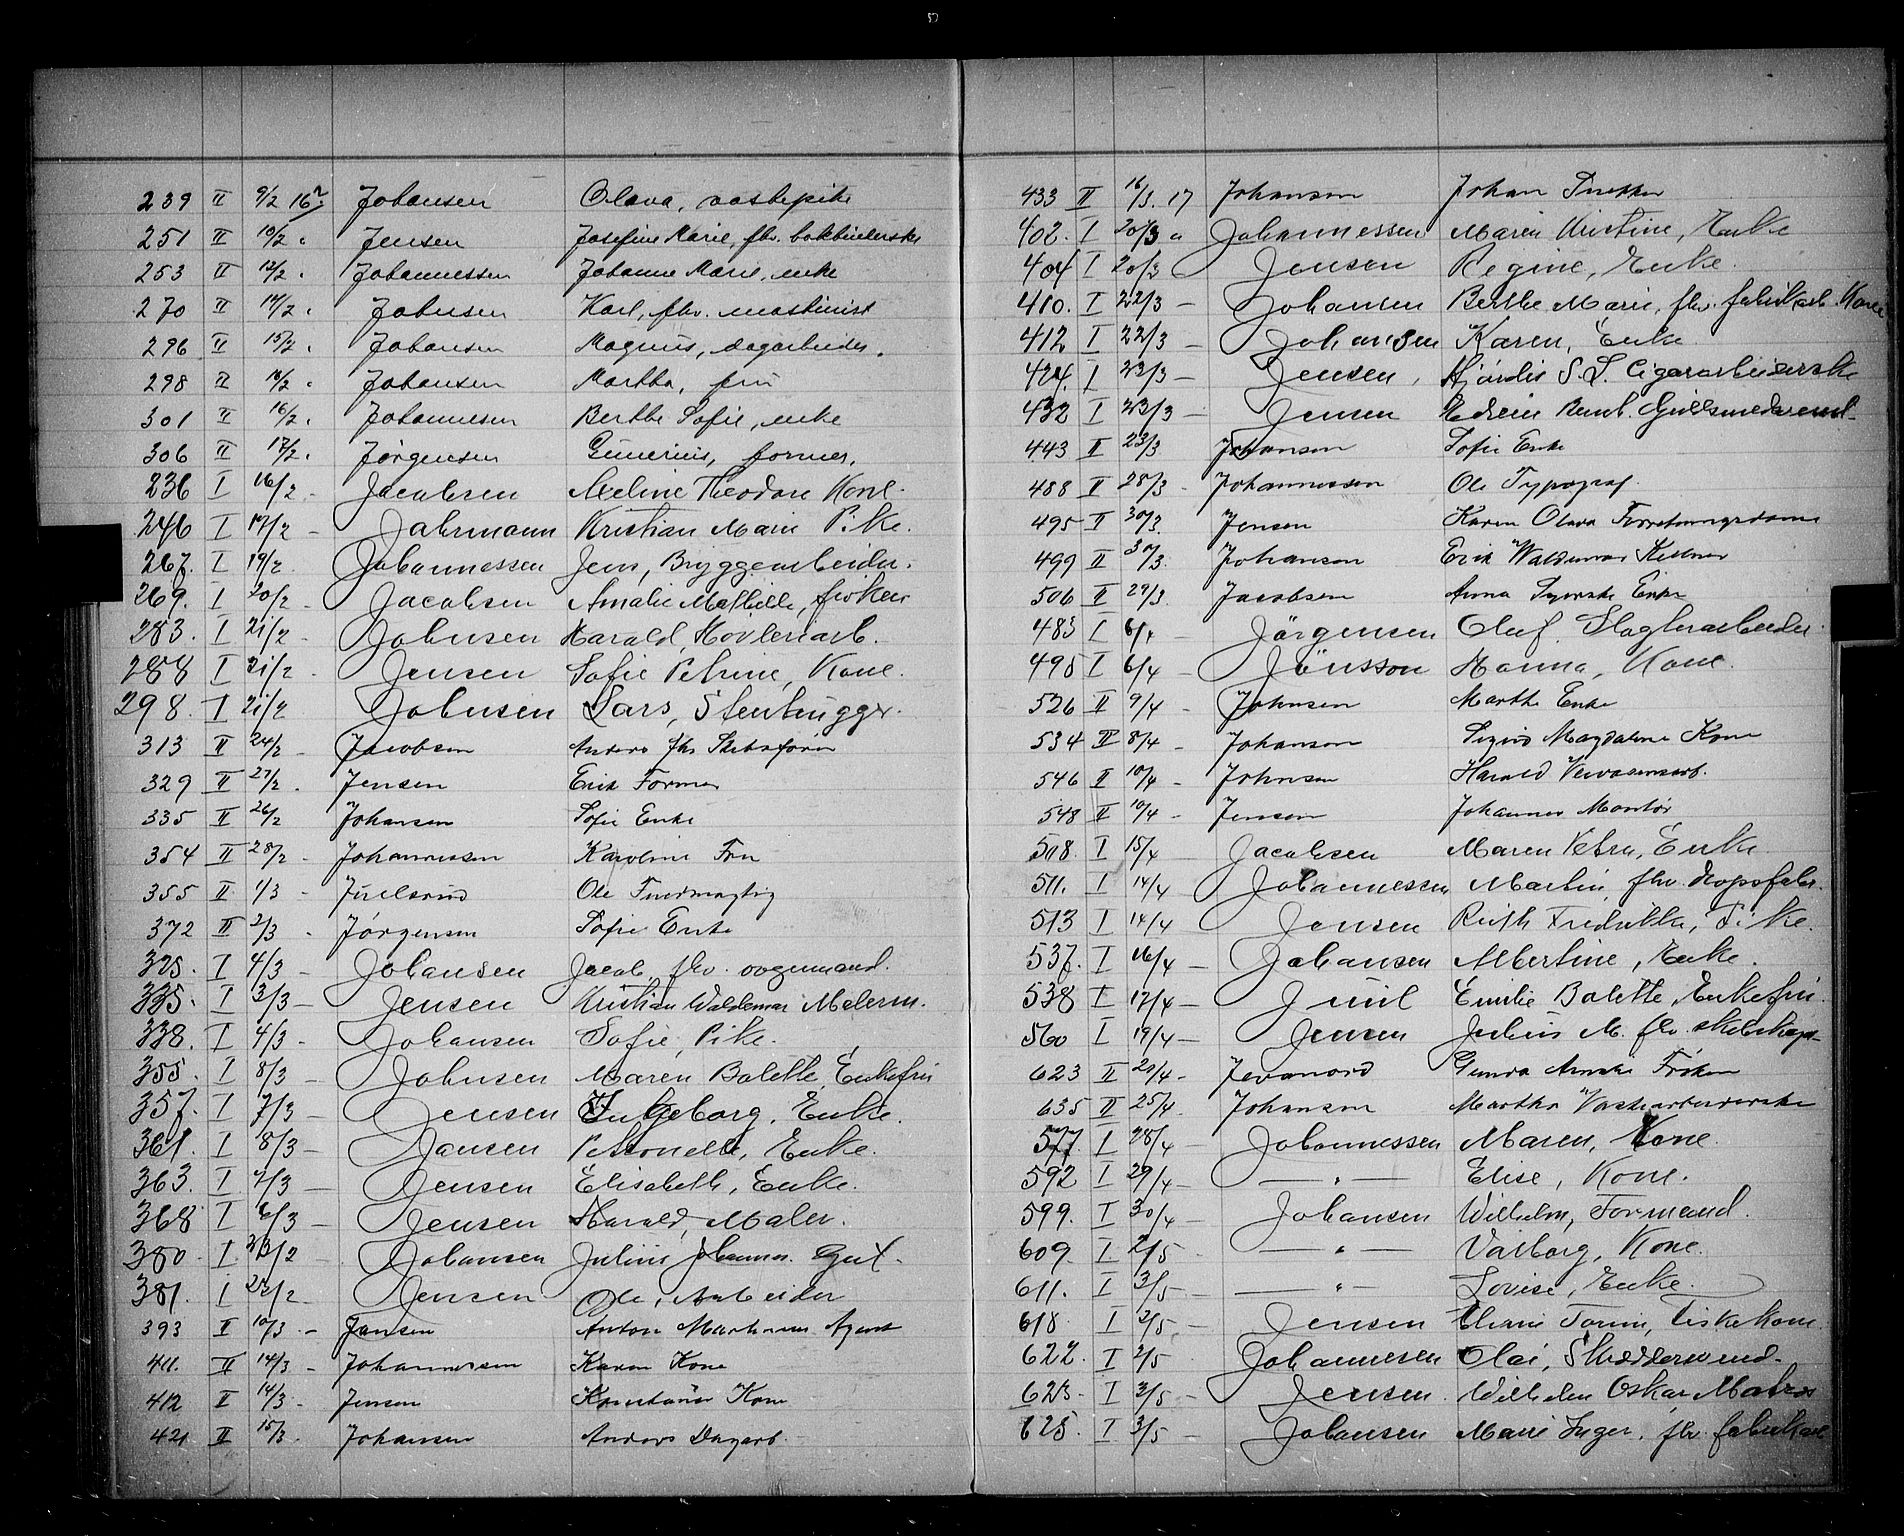 239 II 9/2 16 Johansen Olava, vaskepike
251 II 10/2 " Jensen Josefine Marie, fhv. bokbinderske
253 II 12/2 " Johannessen Johanne Marie, enke
270 II 14/2 " Johnsen Karl, fhv. maskinist
296 II 15/2 " Johansen Magnus, dagarbeider.
298 II 16/2 " Johansen Martha, fru
301 II 16/2 " Johannesen Berthe Sofie, enke
306 II 17/2 " Jørgensen Gunerius, former,
236 I 16/2 - Jacobsen Theodora Kone.
246 I 17/2 - Jahrmann Kristian Marie Pike.
267. I 19/2 Johannessen Jens, Bryggearbeider.
269. I 20/2 - Jacobsen Amalie Mathilde, frøken
283. I 21/2 - Johnsen Harald, Høvleriarb.
288 I 21/2 - Jensen Sofie Petrine, Kone.
298. I 21/2 Johnsen Lars, Stenhugger.
313 II 24/2 - Jacobsen Anders fhv Skibsfører
329 II 27/2 - Jensen Erik Former
335 II 26/2 Johansen Sofie Enke
354 II 28/2 - Johannessen Karoline Fru
355 II 1/3 - Juelsrud Ole
372 II 2/3 - Jørgensen Sofie Enke
325. I 4/3 - Johansen Jacob, fhv. vognmand.
335. I 3/3 - Jensen Kristian Waldemar Malerm.
338. I 4/3 - Johansen Sofie, Pike.
355. I 8/3 - Johnsen Maren Bolette, Enkefru
357. I 7/3 - Jensen Ingeborg, Enke.
361. I 8/3 - Jansen Petronelle, Enke.
363. I 7/3 - Jensen Elisabeth, Enke.
368 I 6/3 - Jensen Harald, Maler.
380. I 23/2 - Johansen Julius Johannes. Gut.
381. I 25/2 - Jensen Ole, Arbeider
393 II 10/3 - Jansen Anton Agent
411. II 14/3 - Johannessen Karen Kone
412 II 14/3 - Jensen Konstance Kone
421 II 15/3 - Johansen Anders Dagarb.
433 II 16/3 17 Johansen Johan Snekker
402. I 20/3 " Johannessen Maren Kristine, Enke
404 I 20/3 Jensen Regine, Enke.
410. I 22/3 - Johansen Berthe Marie, fhv. fabrikarb. Kone
412 I 22/3 - Johansen Karen, Enke
424. I 23/3 - Jensen, Hjørdis S. L. Cigararbeiderske
432 I 23/3 - Jensen
443 II 23/3 Johansen Sofie Enke
488 II 28/3 - Johannessen Ole Typograf.
495 II 30/3 Jensen Karen Olava Forretningsdame
499 II 30/3 Johansen Erik Waldemar Kelner
506 II 29/3 Jacobsen Anna Syerske Enke
483 I 6/4 - Jörgensen Oluf. Slagterarbeider.
495 I 6/4 - Jönsson Hanna, Kone.
526 II 9/4 - Johnsen Marthe Enke
534 II 8/4 - Johansen Sigrid Magdalene Kone
546 II 10/4 - Johnsen Harald
548 II 10/4 - Jensen Johannes Montør
508. I 15/4 - Jacobsen Maren Petra, Enke
511. I 14/4 - Johannessen Martin, fhv.
513 I 14/4 - Jensen Ruth Fredrikke, Pike.
537. I 16/4 - Johansen Albertine, Enke.
538 I 17/4 - Juul Emilie Bolette, Enkefru.
560 I 19/4 - Jensen Julius M. fhv. skibskapt.
623 II 20/4 - Jevanord Gunda Frøken
635 II 25/4 - Johansen Martha Vaskearbeiderske
577 I 28/4 - Johannessen Maren, Kone.
592 I 29/4 - — " — Elise, Kone.
599. I 30/4 - Johansen Wilhelm, Formand.
609. I 2/5 - — " — Valborg, Kone.
611. I 3/5 - — " — Lovise, Enke.
618. I 2/5 - Jensen Fiskekone.
622. I 2/5 Johannesen Olai, Skræddersvend.
623. I 3/5 - Jensen. Wilhelm Oskar Matros
625. I 3/5 - Johansen Marie Inger, fhv. fabrikarb